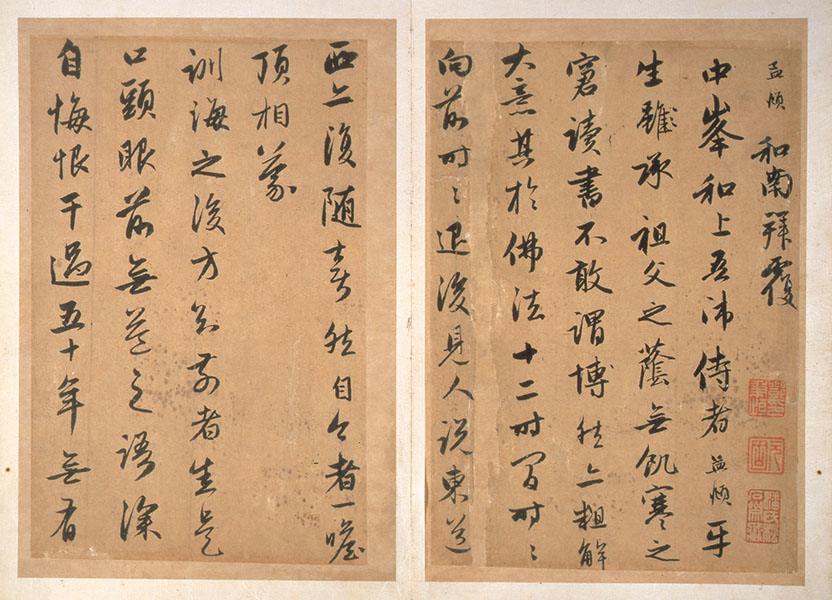 孟頫和南拜覆
中峯和上吾师侍者孟頫平
生雖承祖父之蔭無飢寒之
窘讀書不敢謂博然亦粗解
大意其於佛法十二時間時〻
向前時〻退後見人说東道
西亦復随喜然自今者一瞻
頂相蒙
訓誨之後方知前者生是
口頭眼前無益之語深
自悔恨干過五十年無有